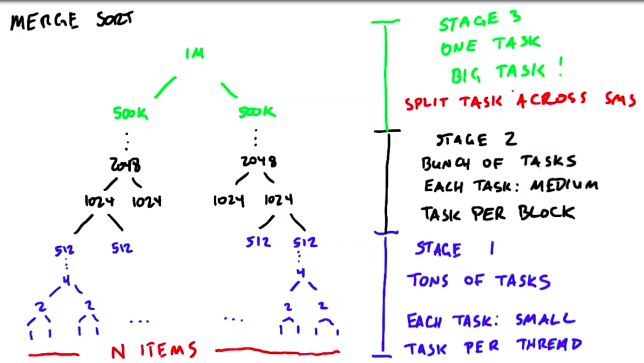 MERGE SORT
1M
500K 500K
2048 2048
1024 1024 1024 1024
512 512 512 512
4 4
2 2 2 2
1 1 1 1 1 1 1 1
N ITEMS
STAGE 3
ONE TASK
BIG TASK!
SPLIT TASK ACROSS SMS
STAGE 2
BUNCH OF TASKS
EACH TASK: MEDIUM
TASK PER BLOCK
STAGE 1
TONS OF TASKS
EACH TASK: SMALL
TASK PER THREAD